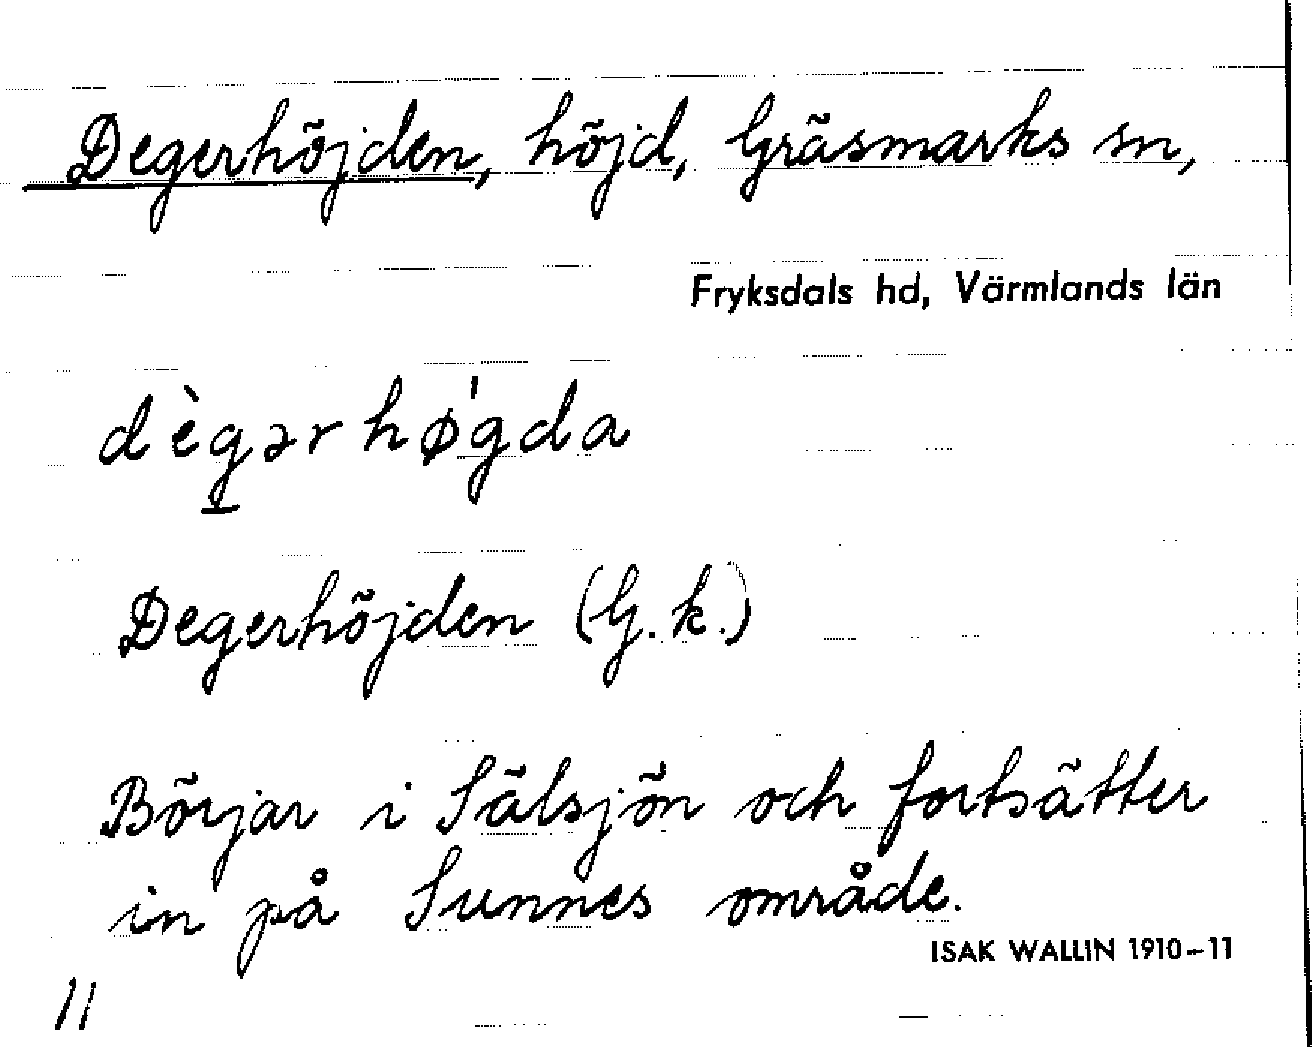 Degerhöjden, höjd, Gräsmarks sn,
Fryksdals hd, Värmlands län
dègərhø̍gda
Degerhöjden (G.k.)
Börjar i Sälsjön och fortsätter
in på Sunnes område.
ISAK WALLIN 1910-11
11